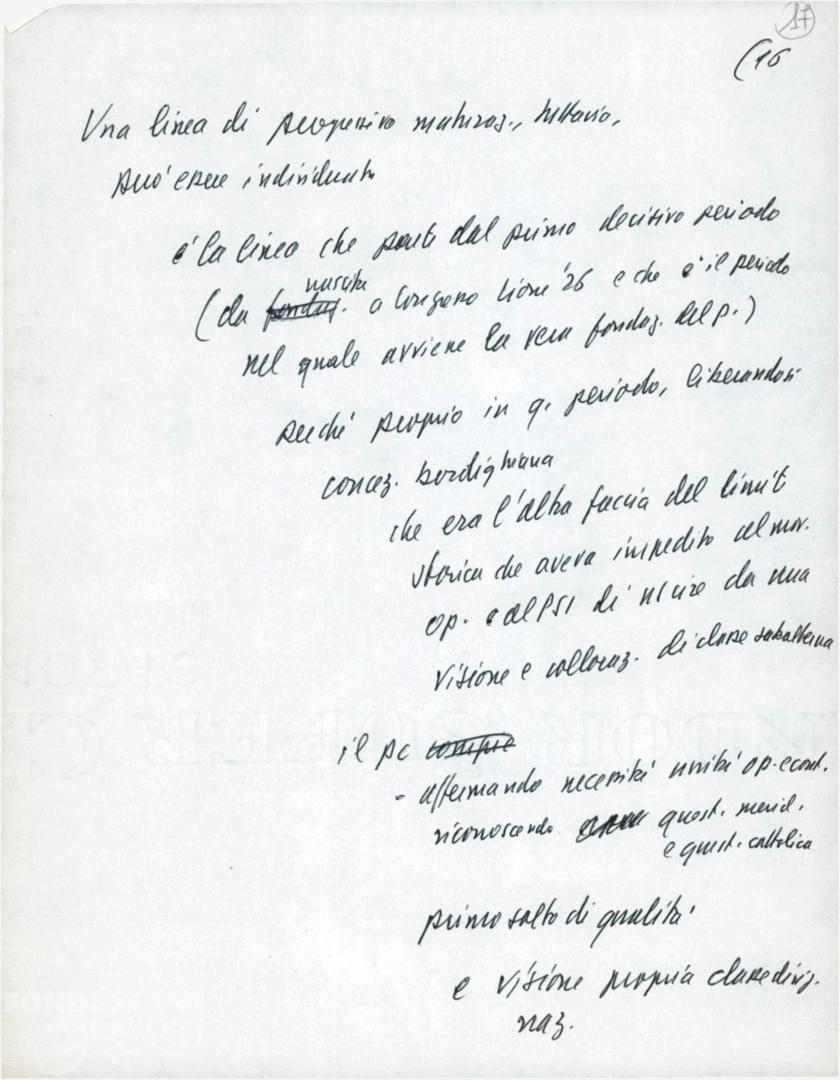 17
(16
Una linea di progressiva maturaz., tuttavia,
può essere individuata
è la linea che parte dal primo decisivo periodo
nascita
(da fondaz. a Congresso Lione '26 e che è il periodo
nel quale avviene la vera fondaz. del p.)
perché proprio in q. periodo, liberandosi
concez. bordighiana
che era l'altra faccia del limite
storico che aveva impedito al mov.
op. e al PSI di uscire da una
visione e collocaz. di classe subalterna
il pc compie
- affermando necessità unità op. e cont.
riconoscendo quest. merid.
e quest. cattolica
primo salto di qualità
e visione propria classe dirig.
naz.